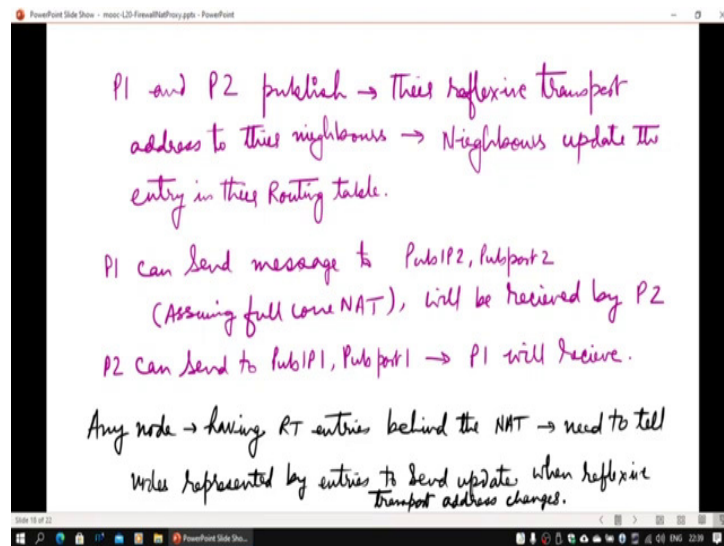 PowerPoint Slide Show - mooc-L20-FirewallNatProxy.pptx - PowerPoint
P1 and P2 publish → Their reflexive transport
address to their nieghbours → Nieghbours update the
entry in their Routing table.
P1 can send message to Pub1P2, Pubport2
(Assuming full cone NAT), will be recieved by P2
P2 can send to Pub1P1, Pubport1 → P1 will recieve.
Any node → having RT entries behind the NAT → need to tell
nodes represented by entries to send update when reflexive
transport address changes.
Slide 18 of 22
PowerPoint Slide Sho...
ENG 22:39